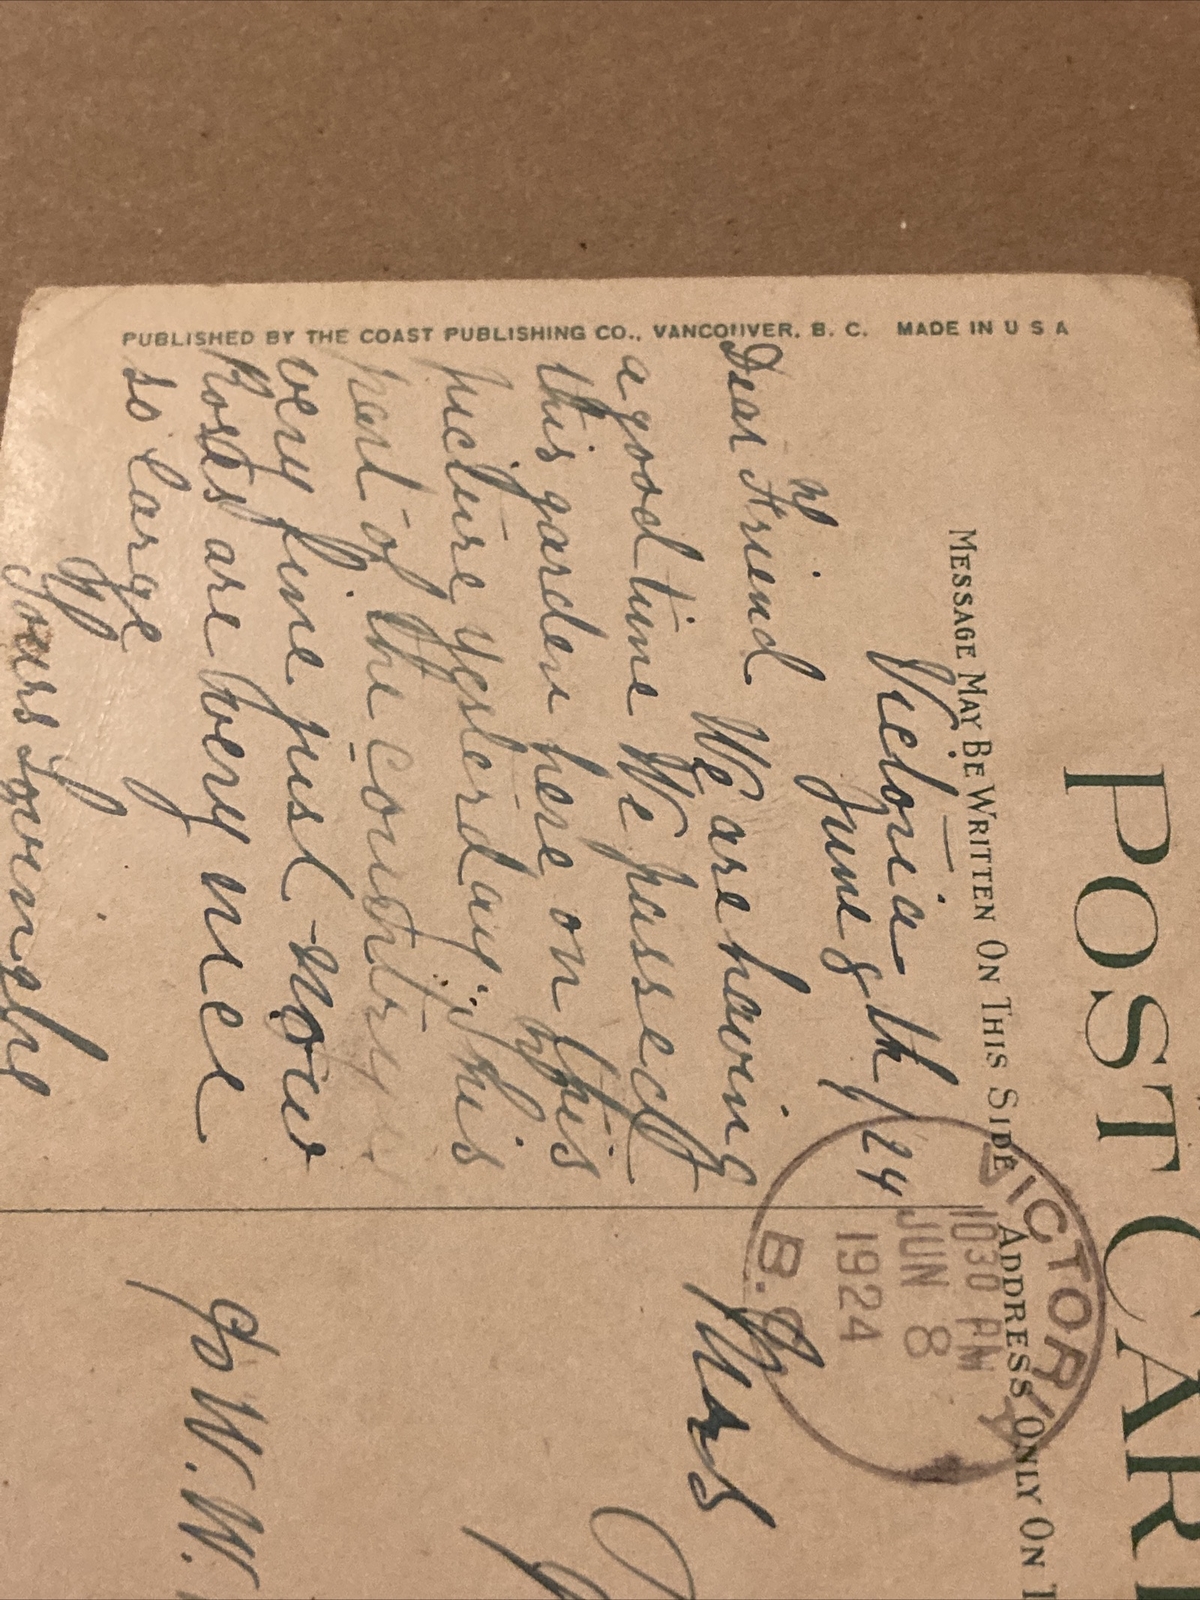 PUBLISHED BY THE COAST PUBLISHING CO., VANCOUVER, B. C. MADE IN U S A
POST CAR
MESSAGE MAY BE WRITTEN ON THIS SIDE
ADDRESS ONLY ON T
VICTORIA
1030 AM
JUN 8
1924
B.C
Victoria
June 8th/24
Dear Friend We are having
a good time We passed
this garden here on this
picture yesterday. This
part of the country
very fine just now
Roses are very nice
so large
Yours Lovingly
Mrs
W. W.